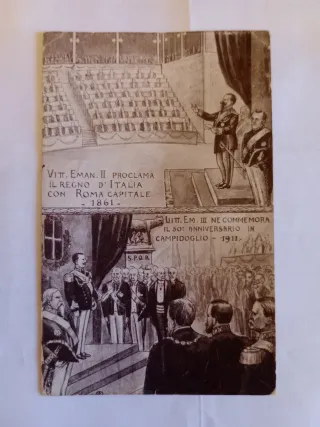 VITT. EMAN. II PROCLAMA
IL REGNO D'ITALIA
CON ROMA CAPITALE
- 1861 -
VITT. EM. III NE COMMEMORA
IL 50º ANNIVERSARIO IN
CAMPIDOGLIO - 1911 -
S.P.Q.R.